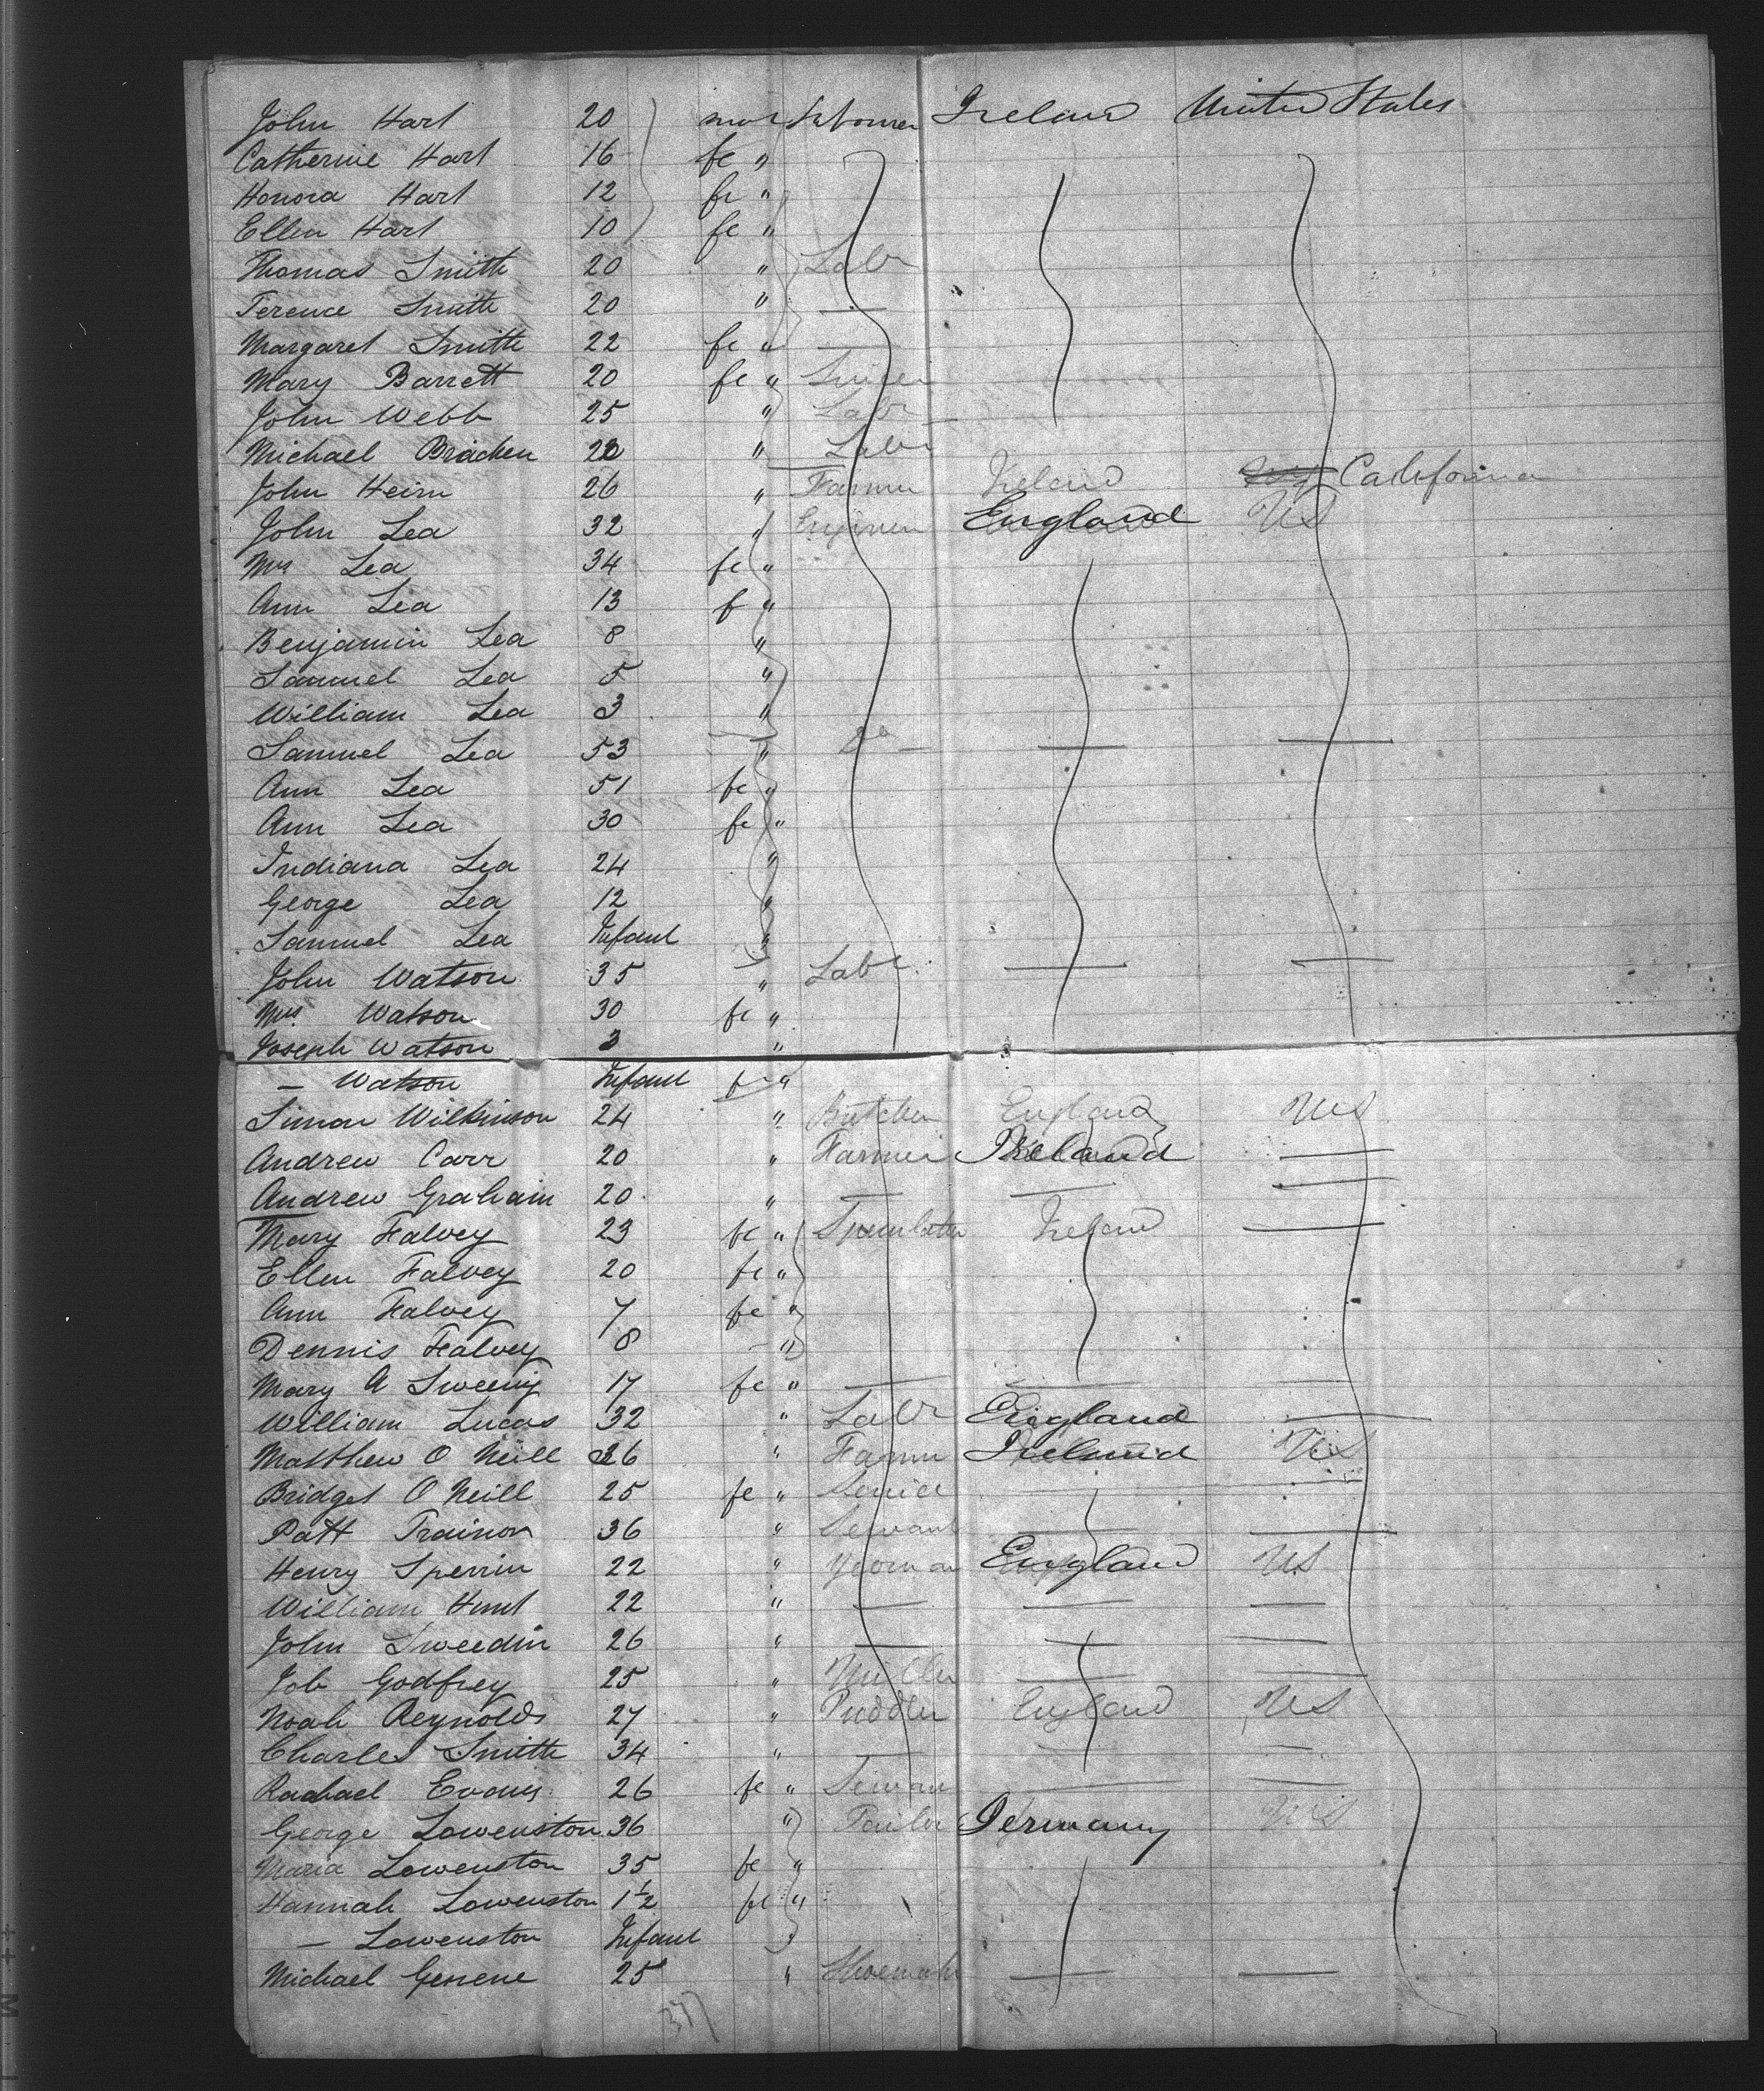 John Hart 20 mal Labourer Ireland United States
Catherine Hart 16 fe "
Honora Hart 12 fe "
Ellen Hart 10 fe "
Thomas Smith 20 " Labr
Terence Smith 20 " —
Margaret Smith 22 fe " —
Mary Barrett 20 fe "
John Webb 25 " Labr
Michael Bracken 23 " Labr
John Heirn 26 " Farmer Ireland California
John Lea 32 " Engineer England US
Mrs Lea 34 fe "
Ann Lea 13 f "
Benjamin Lea 8 "
Samuel Lea 5 "
William Lea 3 "
Samuel Lea 53 " Do — —
Ann Lea 51 fe "
Ann Lea 30 fe "
Indiana Lea 24 "
George Lea 12 "
Samuel Lea Infant "
John Watson 35 " Labr — —
Mrs Watson 30 fe "
Joseph Watson 3 "
— Watson Infant f "
Simon Wilkinson 24 " Butcher England US
Andrew Carr 20 " Farmer Ireland —
Andrew Graham 20 " — — —
Mary Falvey 23 fe " Ireland —
Ellen Falvey 20 fe "
Ann Falvey 7 fe "
Dennis Falvey 8 "
Mary A Sweeny 17 fe " — — —
William Lucas 32 " Labr England —
Matthew O Neill 26 " Farmer Ireland US
Bridget O Neill 25 fe "
Patt Trainor 36 " Servant — —
Henry Sperrin 22 " Yeoman England US
William Hunt 22 " — — —
John Sweedin 26 " — — —
Job Godfrey 25 " Miller — —
Noah Reynolds 27 " Puddler England US
Charles Smith 34 " — —
Rachael Evans 26 fe " — —
George Lowenston 36 " Tailor Germany US
Maria Lowenston 35 fe "
Hannah Lowenston 1½ fe "
— Lowenston Infant "
Michael Genene 25 " Shoemakr — —
377